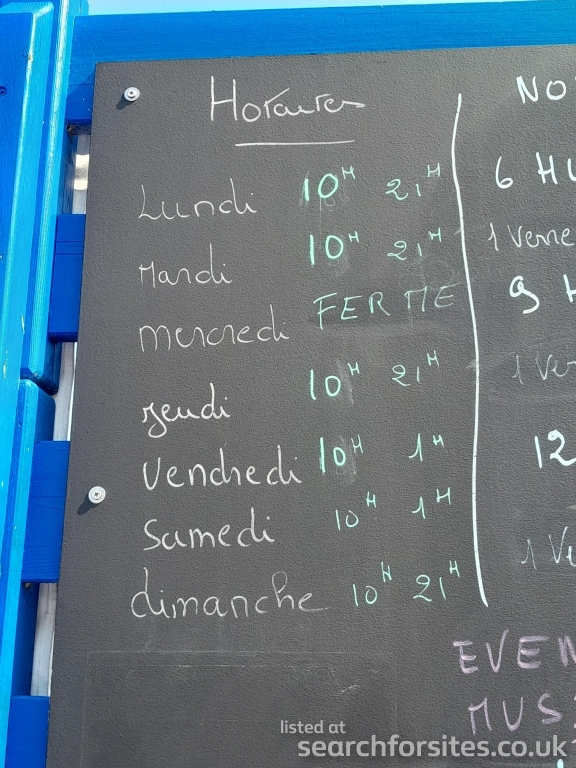 Horaires
Lundi 10H 21H
Mardi 10H 21H
mercredi FERME
jeudi 10H 21H
Vendredi 10H 1H
Samedi 10H 1H
dimanche 10H 21H
NO
6 HU
1 Verre
9 H
1 Ver
12
1 Ve
EVEN
MUS
listed at
searchforsites.co.uk